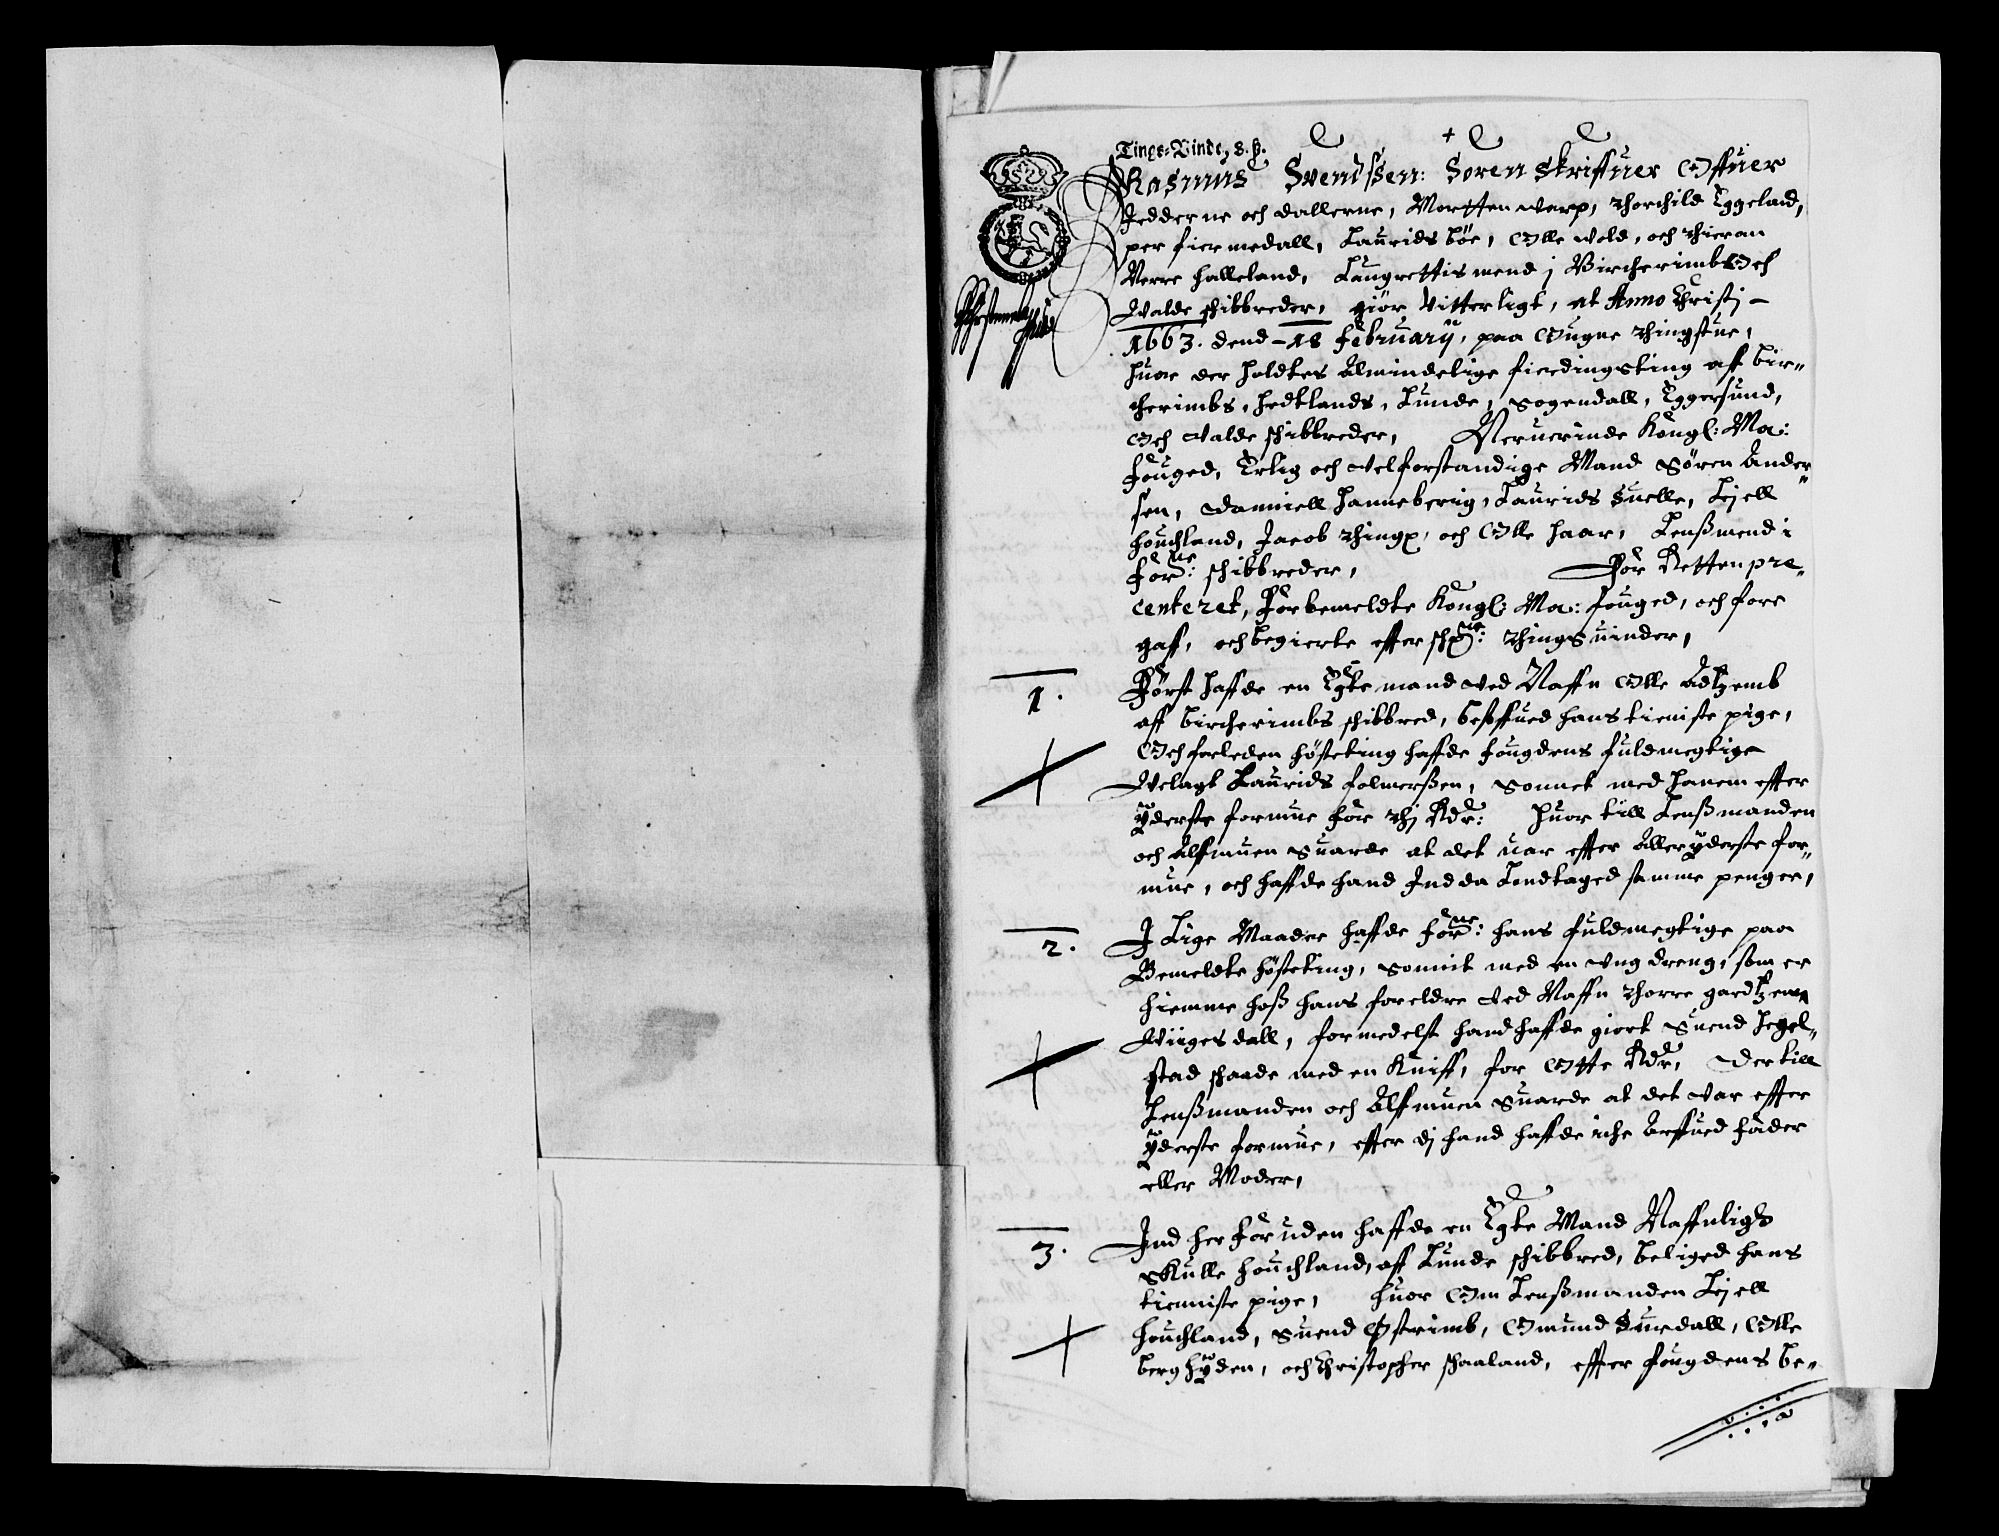 Tings-Vinde, 8. ß.
Rasmus Svendssen: Soren Skriffuer Offuer
Jedderne och dallerne, Mortten Varp, Thorchild Eggeland,
per fiermedall, Laurids Böe, Olle Vold, och
Verre Halleland, Laugrettismend j Bircherimbs Och
Valde schibbreder, giör Vitterligt, at Anno Christj –
1663. dend – 18 Februarij, paa Ougne Thingstue,
huor der holdtes Almindelige fierdingsting aff Bir-
cherimbs, Hedtlands, Lunde, Sogendall, Eggersund,
Och Valde schibbreder, Neruerinde Kongl: Ma:
Fouged, Erlig och velforstandige Mand Sören Ander-
sen, Danniell Hanneberrig, Laurids Suelle, Kiell
Houchland, Jacob och Olle Haar, Lenßmend i
Forne: schibbreder, For Retten pre-
centeret, Forbemeldte Kongl: Ma: fouged, och fore
gaff, och begierte effter schrne: Thingsuinder,
1. Först haffde en Egte mand ved Naffn Olle Adtzemb
aff Bircherimbs schibbred, besoffued hans tieniste pige,
Och forleden Hösteting haffde fougdens fuldmegtige
Velagt Laurids folmerßen, Sonnet med hanem effter
ÿderste formue for thj Rdr: Huor till Lenßmanden
och Allmuen Suarde at det uar effter Aller ÿderste for-
mue, och haffde hand Endda samme penger,
2. J Lige Maader haffde forne: hans fuldmegtige paa
Bemeldte Hösteting, Sonnit med en ung dreng, som er
hiemme hoß hans foreldre ved Naffn Thorre
Viigesdall, formedelst hand haffde giort Suend Hegel-
stad schaade med en Kniff, for Otte Rdr, Der till
Lenßmanden och Allmuen Suarde at det var effter
ÿderste formue, effter dj hand haffde iche Arffued fader
eller Moder,
3. Jnd her foruden haffde en Egte Mand Naffnlig
Skulle Houchland, aff Lunde schibbred, Beliged hans
tienniste pige, Huor Om Lenßmanden Kiell
Houchland, Suend Östrimb, Omund Suedall, Olle
Berghÿden, och Christopher Schaaland, effter fougdens be-